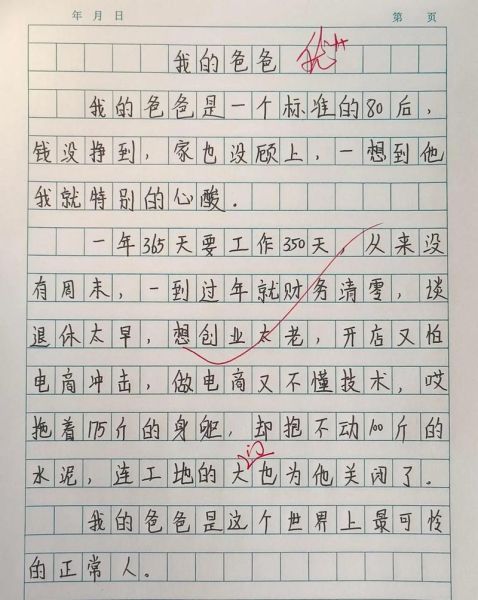 年 月 日 第 页
我的爸爸 优++
我的爸爸是一个标准的80后，
钱没挣到，家也没顾上，一想到他
我就特别的心酸．
一年365天要工作350天，从来没
有周末，一到过年就财务清零，谈
退休太早，想创业太老，开店又怕
电商冲击，做电商又不懂技术，哎
拖着175斤的身躯，却抱不动100斤的
水泥，连工地的大也为他关闭了．
我的爸爸是这个世界上最可怜
的正常人。